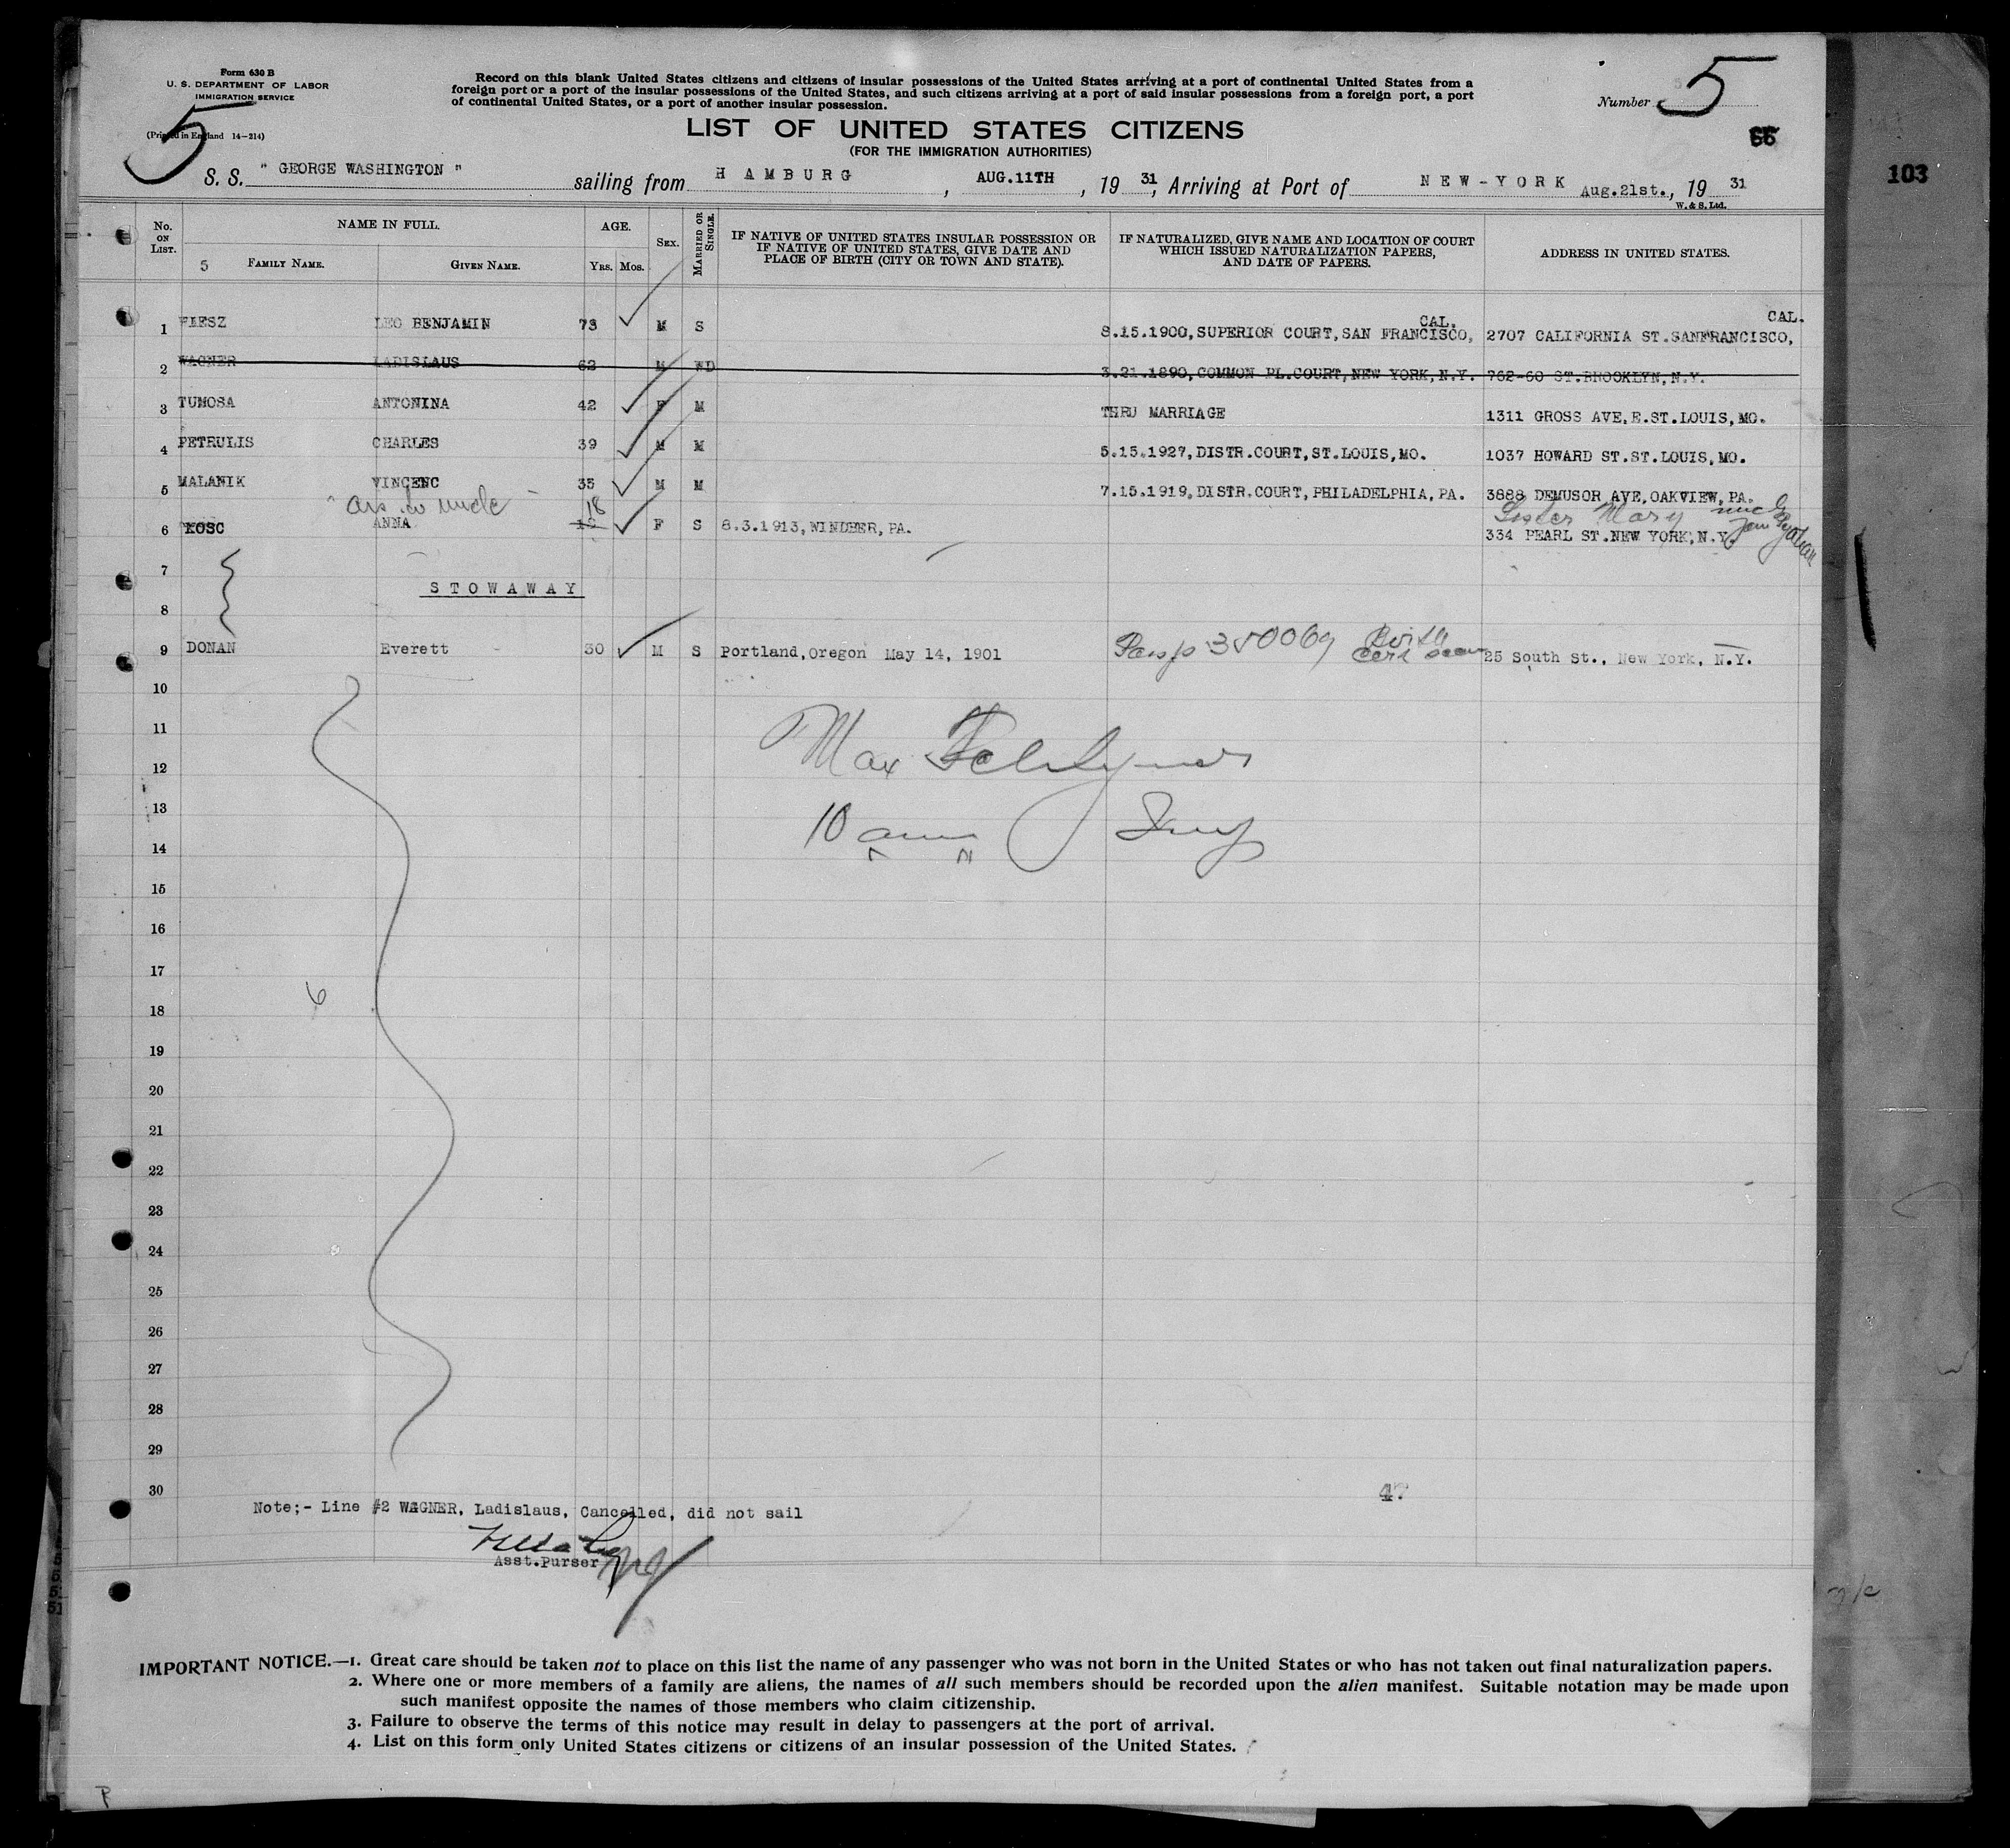 Form 630 B
U. S. DEPARTMENT OF LABOR
IMMIGRATION SERVICE
(Printed in England 14-214)
5
Record on this blank United States citizens and citizens of insular possessions of the United States arriving at a port of continental United States from a
foreign port or a port of the insular possessions of the United States, and such citizens arriving at a port of said insular possessions from a foreign port, a port
of continental United States, or a port of another insular possession.
Number 5
LIST OF UNITED STATES CITIZENS
(FOR THE IMMIGRATION AUTHORITIES)
103
S. S. " GEORGE WASHINGTON " sailing from HAMBURG, AUG.11TH, 19 31, Arriving at Port of NEW-YORK Aug.21st., 19 31
W. & S. Ltd.
No. ON LIST. NAME IN FULL. AGE. SEX. MARRIED OR SINGLE. IF NATIVE OF UNITED STATES INSULAR POSSESSION OR IF NATIVE OF UNITED STATES, GIVE DATE AND PLACE OF BIRTH (CITY OR TOWN AND STATE). IF NATURALIZED, GIVE NAME AND LOCATION OF COURT WHICH ISSUED NATURALIZATION PAPERS, AND DATE OF PAPERS. ADDRESS IN UNITED STATES.
5 FAMILY NAME. GIVEN NAME. YRS. MOS.
1 FIESZ LEO BENJAMIN 73 M S 8.15.1900, SUPERIOR COURT, SAN FRANCISCO, CAL. 2707 CALIFORNIA ST.SANFRANCISCO, CAL.
2 WAGNER LADISLAUS 62 M WD 3.21.1890, COMMON PL.COURT, NEW YORK, N.Y. 762-60 ST.BROOKLYN, N.Y.
3 TUMOSA ANTONINA 42 F M THRU MARRIAGE 1311 GROSS AVE, E.ST.LOUIS, MO.
4 PETRULIS CHARLES 39 M M 5.15.1927, DISTR.COURT, ST.LOUIS, MO. 1037 HOWARD ST.ST.LOUIS, MO.
5 MALANIK VINCENC 35 M M 7.15.1919, DISTR.COURT, PHILADELPHIA, PA. 3888 DEMUSOR AVE, OAKVIEW, PA.
uncle 18 Sister Mary
6 KOSC ANNA F S 8.3.1913, WINDBER, PA. 334 PEARL ST.NEW YORK, N.Y.
7
STOWAWAY
8
9 DONAN Everett 30 M S Portland, Oregon May 14, 1901 Passp 350069 Birth 25 South St., New York, N.Y.
10
11
Max
12
13
10
14
15
16
17
6
18
19
20
21
22
23
24
25
26
27
28
29
30
47
Note;- Line #2 WAGNER, Ladislaus, Cancelled, did not sail
Asst.Purser
IMPORTANT NOTICE.—1. Great care should be taken not to place on this list the name of any passenger who was not born in the United States or who has not taken out final naturalization papers.
2. Where one or more members of a family are aliens, the names of all such members should be recorded upon the alien manifest. Suitable notation may be made upon
such manifest opposite the names of those members who claim citizenship.
3. Failure to observe the terms of this notice may result in delay to passengers at the port of arrival.
4. List on this form only United States citizens or citizens of an insular possession of the United States.